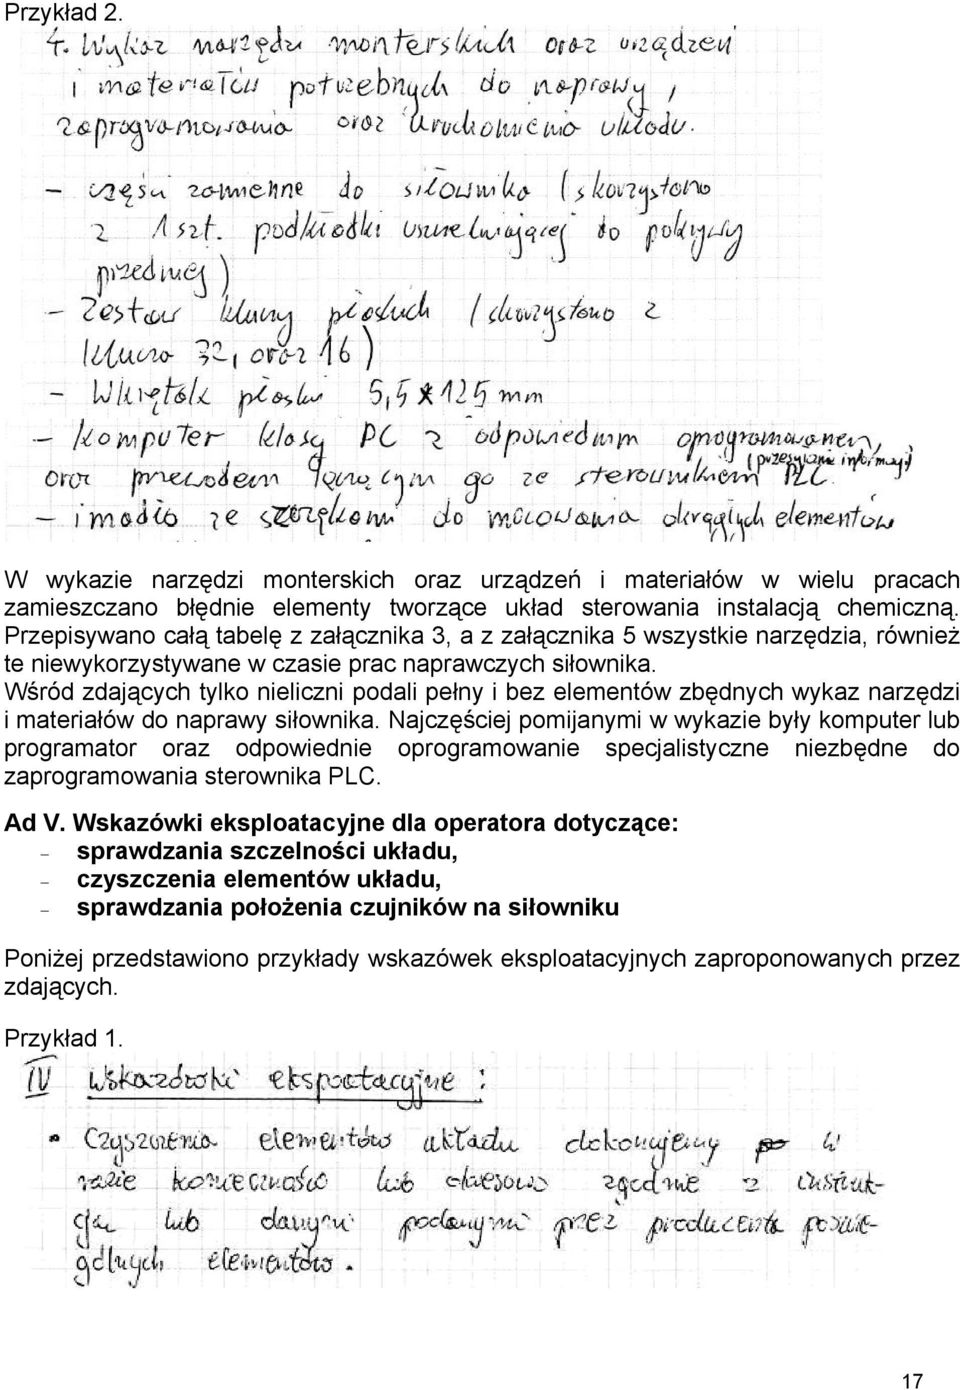 Przykład 2.
4. Wykaz narzędzi monterskich oraz urządzeń
i materiałów potrzebnych do naprawy,
zaprogramowania oraz uruchomienia układu.
- części zamienne do siłownika (skorzystono
z 1szt. podkładki uszczelniającej do pokrywy
przedniej)
- Zestaw kluczy płaskich (skorzystono z
klucza 32, oraz 16)
- Wkrętak płaski 5,5 x 125 mm
- komputer klasy PC z odpowiednim oprogramowaniem,
oraz przewodem łączącym go ze sterownikiem PLC. (przesyłanie informacji)
- imadło ze szczękami do mocowania okrągłych elementów
W wykazie narzędzi monterskich oraz urządzeń i materiałów w wielu pracach
zamieszczano błędnie elementy tworzące układ sterowania instalacją chemiczną.
Przepisywano całą tabelę z załącznika 3, a z załącznika 5 wszystkie narzędzia, również
te niewykorzystywane w czasie prac naprawczych siłownika.
Wśród zdających tylko nieliczni podali pełny i bez elementów zbędnych wykaz narzędzi
i materiałów do naprawy siłownika. Najczęściej pomijanymi w wykazie były komputer lub
programator oraz odpowiednie oprogramowanie specjalistyczne niezbędne do
zaprogramowania sterownika PLC.
Ad V. Wskazówki eksploatacyjne dla operatora dotyczące:
− sprawdzania szczelności układu,
− czyszczenia elementów układu,
− sprawdzania położenia czujników na siłowniku
Poniżej przedstawiono przykłady wskazówek eksploatacyjnych zaproponowanych przez
zdających.
Przykład 1.
IV Wskazówki ekspoatacyjne :
• Czyszczenia elementów układu dokonujemy w
razie konieczności lub okresowo zgodnie z instruk-
cją lub danymi podanymi przez producenta poszcze-
gólnych elementów.
17